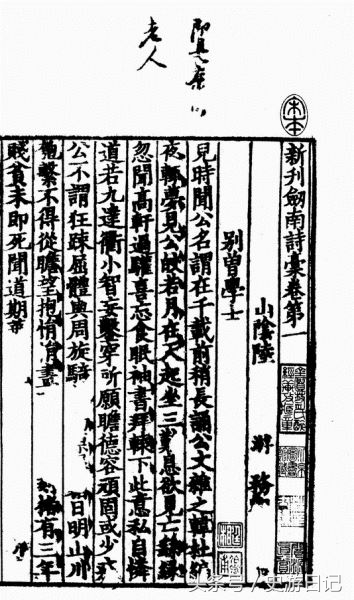 老人
新刊劍南詩藁卷第一
山陰陸 游 務
別曾學士
兒時聞公名謂在千載前稍長誦公文雜之韓杜編
夜輒夢見公皎若月在天起坐三歎息欲見亡繇緣
忽聞高軒過驩喜忘食眠袖書拜轅下此意私自憐
道若九達衢小智妄鑿穿所願瞻德容頑固或少
公不謂狂疎屈體與周旋騎 日明山川
匏繫不得從瞻望抱悁悁畫 楮有三年
賤貧未即死聞道期華
头条号 / 史游日记